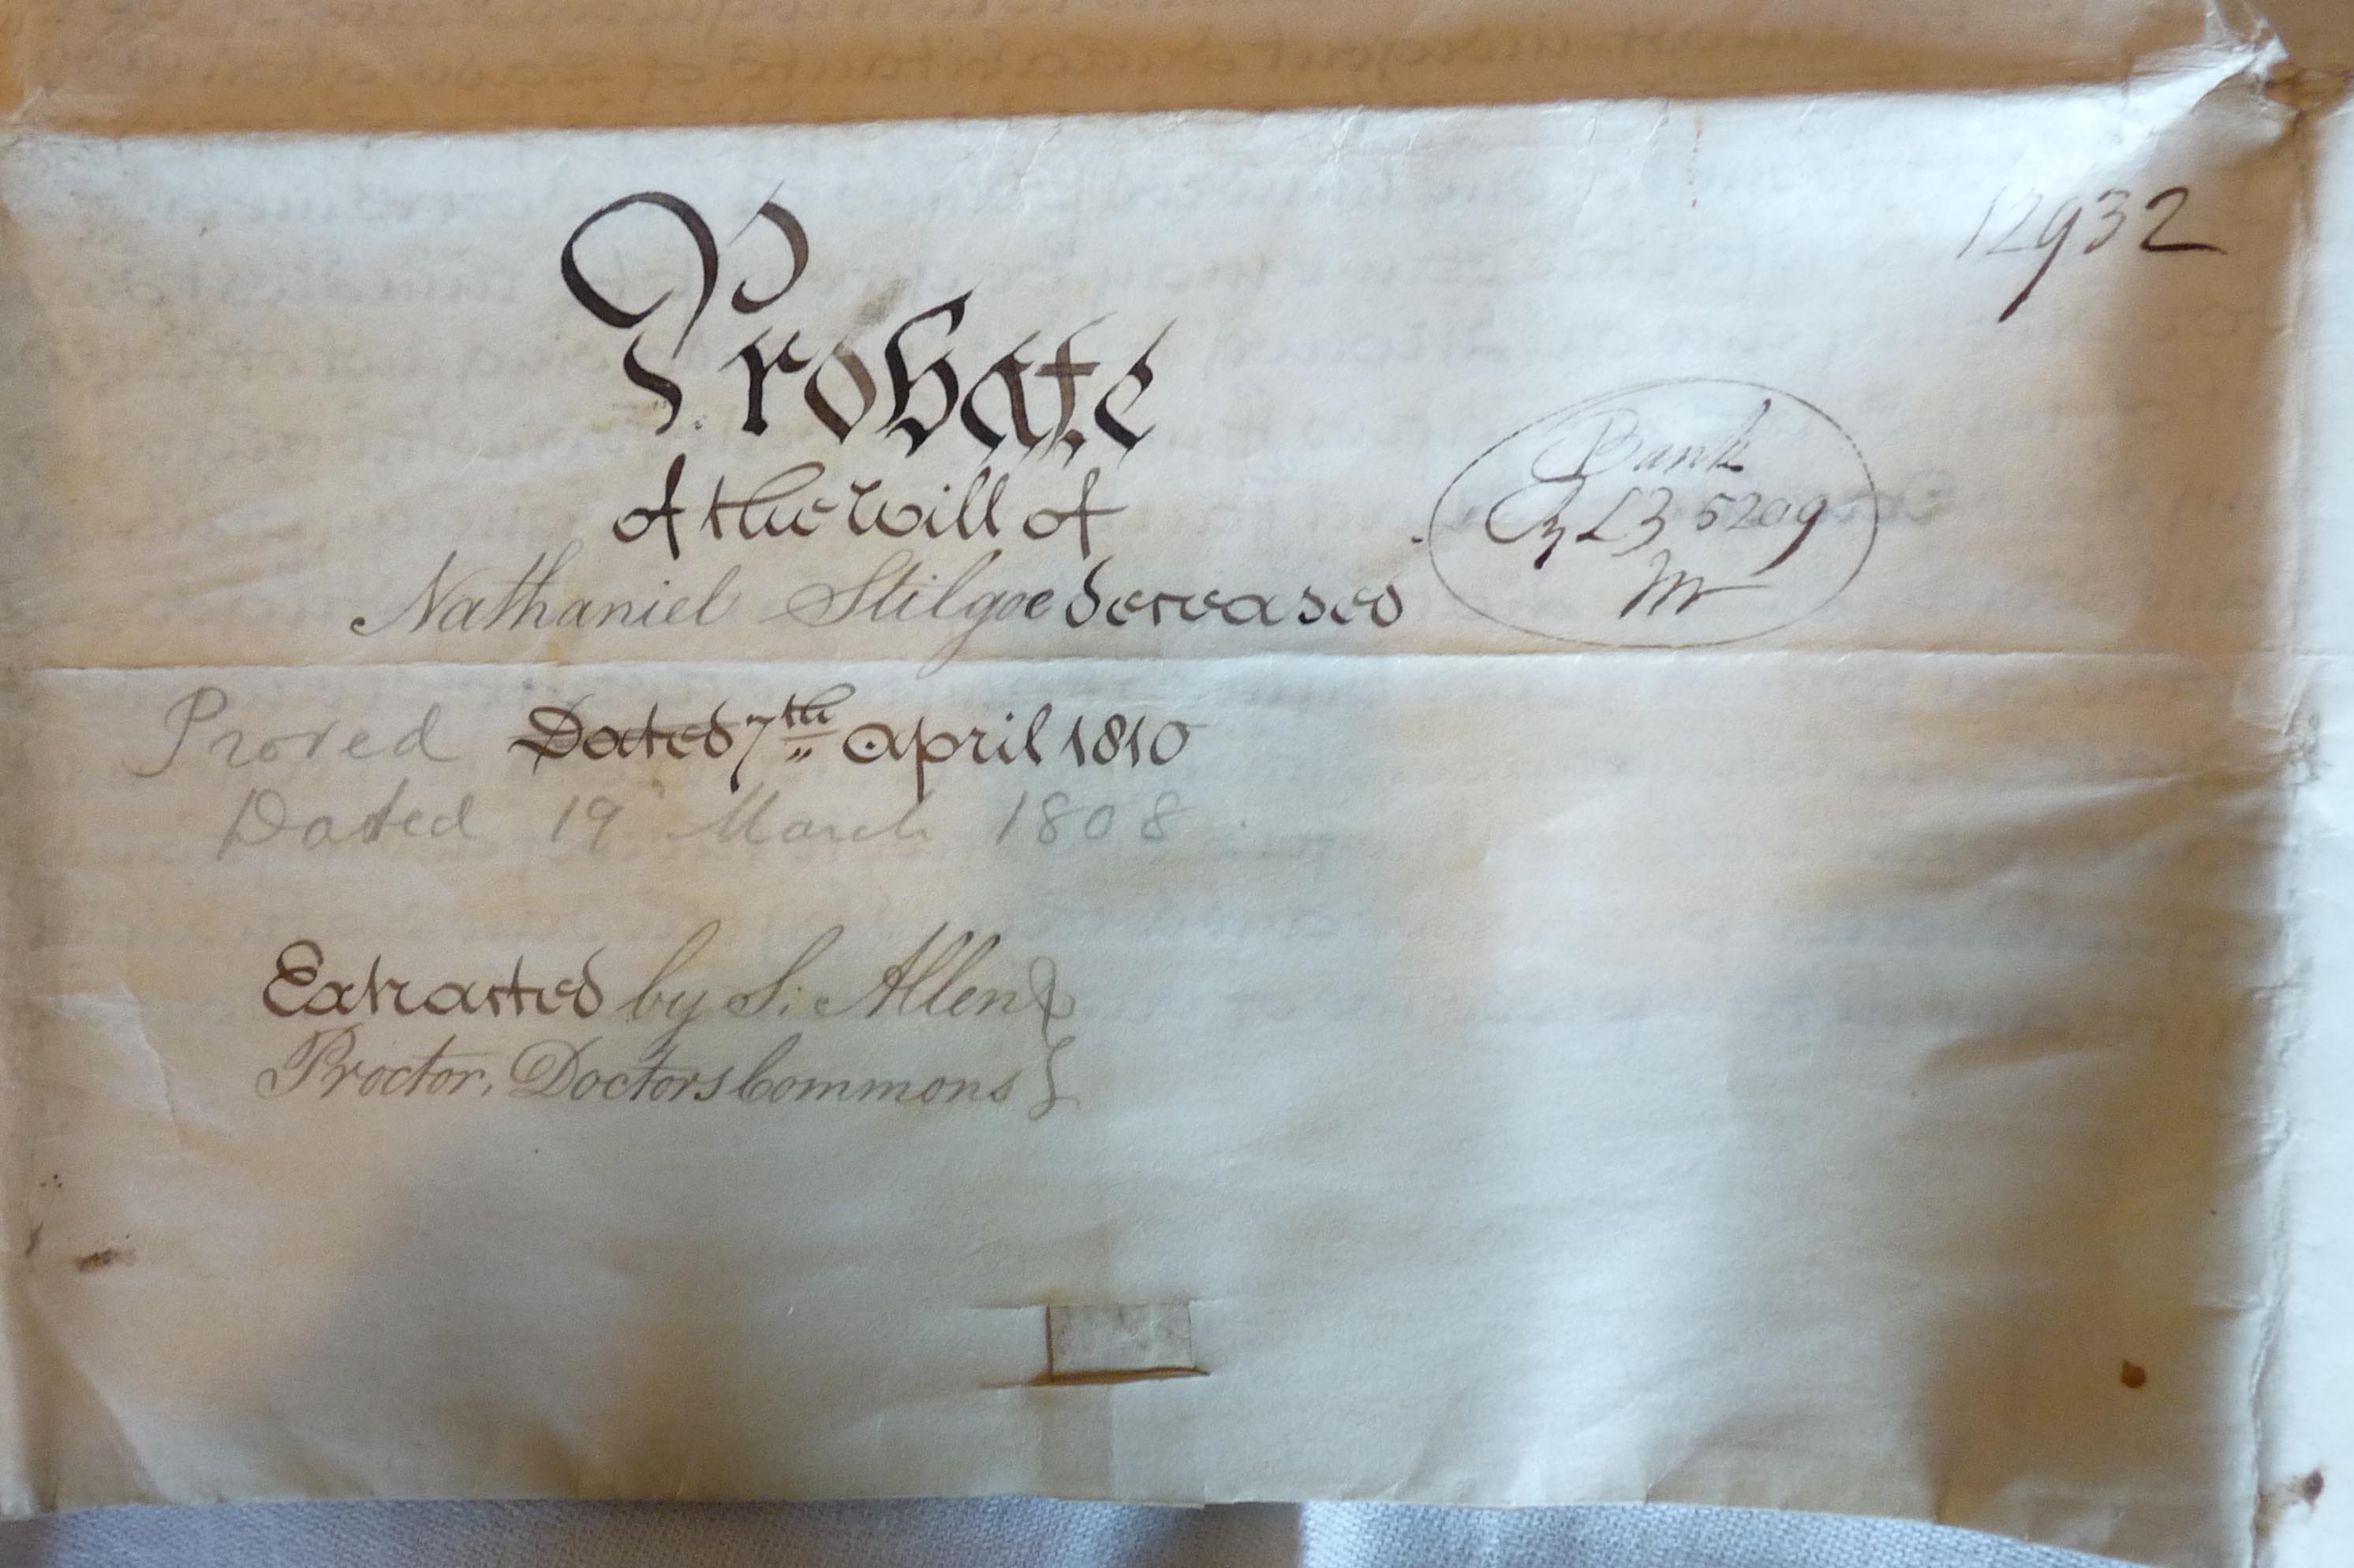 12932
Probate
of the Will of
Nathaniel Stilgoe deceased
Bank
£3 5209
Proved Dated 7th April 1810
Dated 19 March 1808
Extracted by S. Allen
Proctor, Doctors Commons